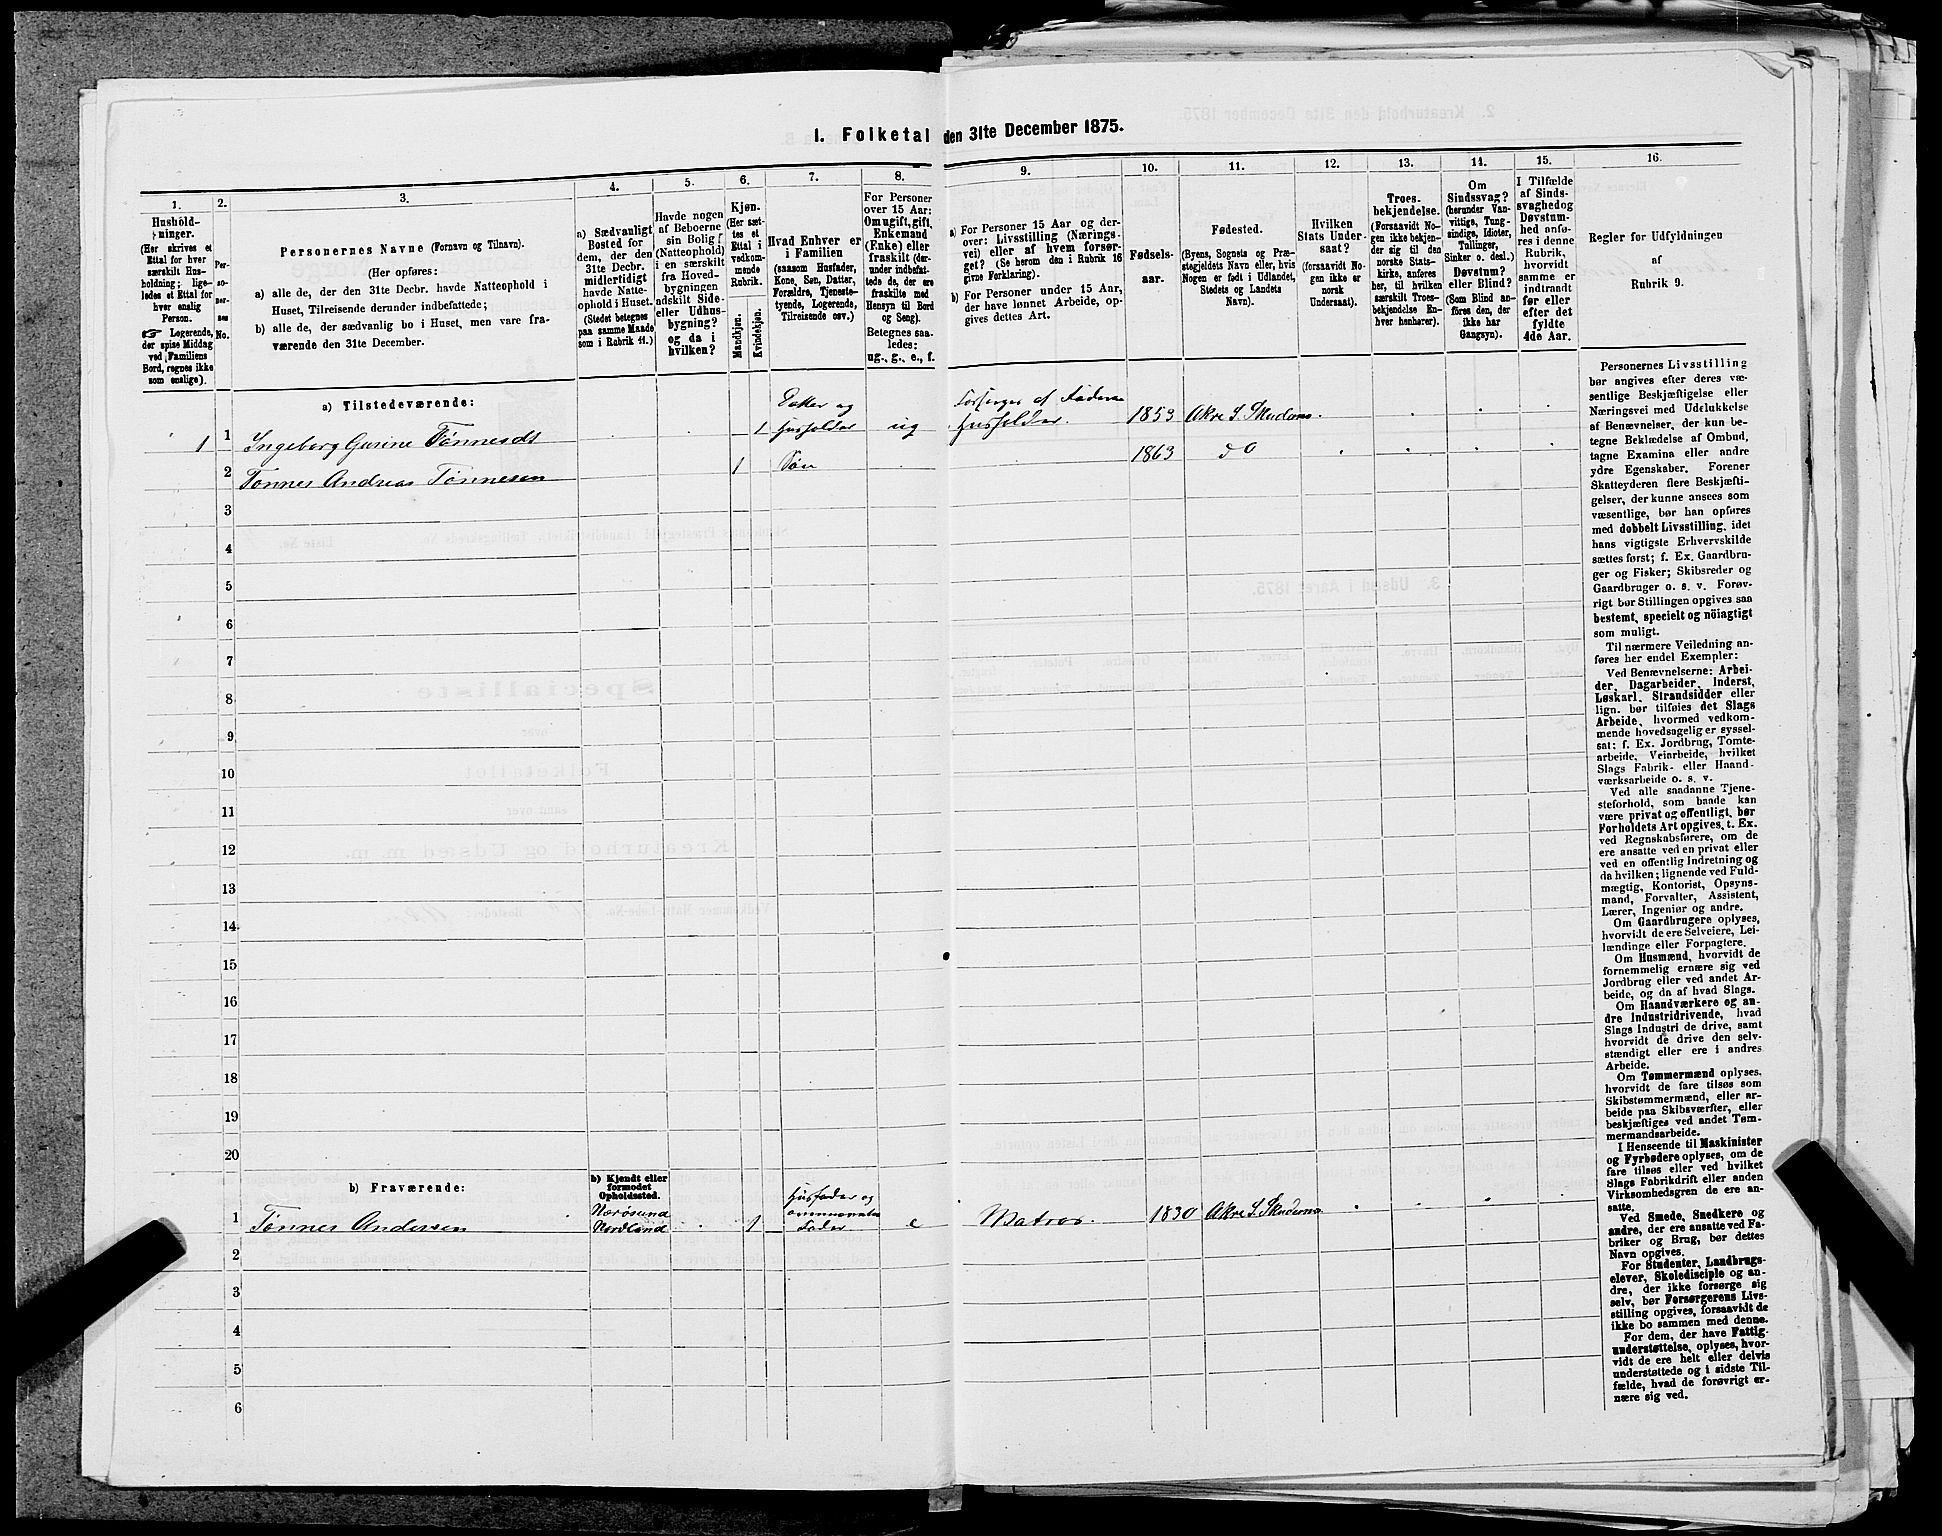 1. Folketal den 31te December 1875.
1.
2.
3.
4.
5.
6.
7.
8.
9.
10.
11.
12.
13.
14.
15.
16.
Hushold-
ninger.
(Her skrives et
Ettal for hver
særskilt Hus-
holdning; lige-
ledes et Ettal for
hver enslig
Person.
☞ Logerende,
der spise Middag
ved Familiens
Bord, regnes ikke
som enslige).
Per-
so-
ner-
nes
No.
Personernes Navne (Fornavn og Tilnavn).
(Her opføres:
a) alle de, der den 31te Decbr. havde Natteophold i
Huset, Tilreisende derunder indbefattede;
b) alle de, der sædvanlig bo i Huset, men vare fra-
værende den 31te December.
a) Sædvanligt
Bosted for
dem, der den
31te Decbr.
midlertidigt
havde Natte-
ophold i Huset.
(Stedet betegnes
paa samme Maade
som i Rubrik 11.)
Havde nogen
af Beboerne
sin Bolig
(Natteophold)
i en særskilt
fra Hoved-
bygningen
adskilt Side-
eller Udhus-
bygning?
og da i
hvilken?
Kjøn.
(Her sæt-
tes et
Ettal i
vedkom-
mende
Rubrik.
Mandkjøn.
Kvindekjøn.
Hvad Enhver er
i Familien
(saasom Husfader,
Kone, Søn, Datter,
Forældre, Tjeneste-
tyende, Logerende,
Tilreisende osv.)
For Personer
over 15 Aar:
Om ugift, gift,
Enkemand
(Enke) eller
fraskilt (der-
under indbefat-
tede de, der ere
fraskilte med
Hensyn til Bord
og Seng).
Betegnes saa-
ledes:
ug., g., e., f.
a) For Personer 15 Aar og der-
over: Livsstilling (Nærings-
vei) eller af hvem forsør-
get? (Se herom den i Rubrik 16
givne Forklaring).
b) For Personer under 15 Aar,
der have lønnet Arbeide, op-
gives dettes Art.
Fødsels-
aar.
Fødested.
(Byens, Sognets og Præ-
stegjeldets Navn eller, hvis
Nogen er født i Udlandet,
Stedets og Landets
Navn).
Hvilken
Stats Under-
saat?
(forsaavidt No-
gen ikke er
norsk
Undersaat).
Troes-
bekjendelse.
(Forsaavidt No-
gen ikke bekjen-
der sig til den
norske Stats-
kirke, anføres
her, til hvilken
særskilt Troes-
bekjendelse En-
hver henhører).
Om
Sindssvag?
(herunder Van-
vittige, Tung-
sindige, Idioter,
Tullinger,
Sinker o. desl.)
Døvstum?
eller Blind?
(Som Blind an-
føres den, der
ikke har
Gangsyn).
I Tilfælde
af Sinds-
svaghed og
Døvstum-
hed anfø-
res i denne
Rubrik,
hvorvidt
samme er
indtraadt
før eller
efter det
fyldte
4de Aar.
Regler for Udfyldningen
af
Rubrik 9.
a) Tilstedeværende:
1 1 Ingeborg Gurine Tønnesdt 1 Datter og husholder ug Forsørges af Faderen husholder. 1853 Akre S. Skudenes
2 Tønnes Andreas Tønnesen 1 Søn 1863 do
3
4
5
6
7
8
9
10
11
12
13
14
15
16
17
18
19
20
b) Fraværende:
b) Kjendt eller
formodet
Opholdssted.
1 Tønnes Andersen Nærösund Nordland 1 Husfader og Fader e Matros. 1830 Akre S. Skudenes
2
3
4
5
6
Personernes Livsstilling
bør angives efter deres væ-
sentlige Beskjæftigelse eller
Næringsvei med Udelukkelse
af Benævnelser, der kun be-
tegne Beklædelse af Ombud,
tagne Examina eller andre
ydre Egenskaber. Forener
Skatteyderen flere Beskjæfti-
gelser, der kunne ansees som
væsentlige, bør han opføres
med dobbelt Livsstilling, idet
hans vigtigste Erhvervskilde
sættes først; f. Ex. Gaardbru-
ger og Fisker; Skibsreder og
Gaardbruger o. s. v. Forøv-
rigt bør Stillingen opgives saa
bestemt, specielt og nöiagtigt
som muligt.
Til nærmere Veiledning an-
føres her endel Exempler:
Ved Benævnelserne: Arbei-
der, Dagarbeider, Inderst,
Løskarl, Strandsidder eller
lign. bør tilføies det Slags
Arbeide, hvormed vedkom-
mende hovedsagelig er syssel-
sat: f. Ex. Jordbrug, Tomte-
arbeide, Veiarbeide, hvilket
Slags Fabrik- eller Haand-
værksarbeide o. s. v.
Ved alle saadanne Tjene-
steforhold, som baade kan
være privat og offentligt, bør
Forholdets Art opgives, t. Ex.
ved Regnskabsførere, om de
ere ansatte ved en privat eller
ved en offentlig Indretning og
da hvilken; lignende ved Fuld-
mægtig, Kontorist, Opsyns-
mand, Forvalter, Assistent,
Lærer, Ingeniør og andre.
Om Gaardbrugere oplyses,
hvorvidt de ere Selveiere, Lei-
lændinge eller Forpagtere.
Om Husmænd, hvorvidt de
fornemmelig ernære sig ved
Jordbrug eller ved andet Ar-
beide, og da af hvad Slags.
Om Haandværkere og an-
dre Industridrivende, hvad
Slags Industri de drive, samt
hvorvidt de drive den selv-
stændigt eller ere i andres
Arbeide.
Om Tømmermænd oplyses,
hvorvidt de fare tilsøs som
Skibstømmermænd, eller ar-
beide paa Skibsværfter, eller
beskjæftiges ved andet Tøm-
mermandsarbeide.
I Henseende til Maskinister
og Fyrbødere oplyses, om de
fare tilsøs eller ved hvilket
Slags Fabrikdrift eller anden
Virksomhedsgren de ere an-
satte.
Ved Smede, Snedkere og
andre, der ere ansatte ved Fa-
briker og Brug, bør dettes
Navn opgives.
For Studenter, Landbrugs-
elever, Skoledisciple og an-
dre, der ikke forsørge sig
selv, bør Forsørgerens Livs-
stilling opgives, forsaavidt de
ikke bo sammen med denne.
For dem, der have Fattig-
understøttelse, oplyses, hvor-
vidt de ere helt eller delvis
understøttede og i sidste Til-
fælde, hvad de forøvrigt er-
nære sig ved.